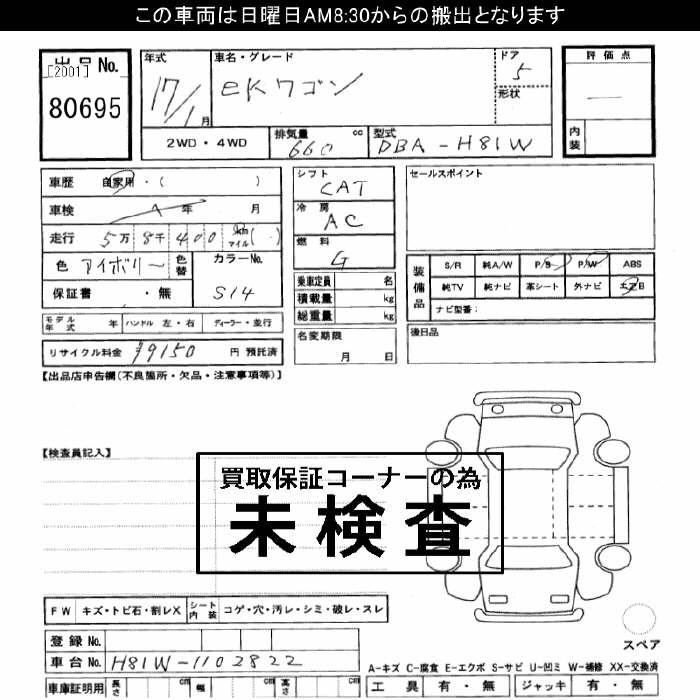 この車両は日曜日AM8:30からの搬出となります
出品 No.
[2001]
80695
年式
17/1月
車名・グレード
eKワゴン
ドア
5
形状
評価点
内装
2WD・4WD
排気量 cc
660
型式
DBA-H81W
車歴 自家用・( )
車検 年 月
走行 5万8千400 km マイル( )
色 アイボリー
色替
カラーNo.
S14
保証書 ・無
シフト
CAT
冷房
AC
燃料
G
乗車定員 名
積載量 kg
総重量 kg
セールスポイント
装備品
S/R 純A/W P/S P/W ABS
純TV 純ナビ 革シート 外ナビ エアB
ナビ型番:
モデル年式 年 ハンドル 左・右 ディーラー・並行
リサイクル料金 ¥9150 円 預託済
名変期限
月 日
後日品
【出品店申告欄(不良箇所・欠品・注意事項等)】
【検査員記入】
買取保証コーナーの為
未検査
FW キズ・トビ石・割レX シート内装 コゲ・穴・汚レ・シミ・破レ・スレ
登録No.
車台No. H81W-1102822
車庫証明用 長さ 幅 高さ
スペア
A-キズ C-腐食 E-エクボ S-サビ U-凹ミ W-補修 XX-交換済
工具 有・無 ジャッキ 有・無